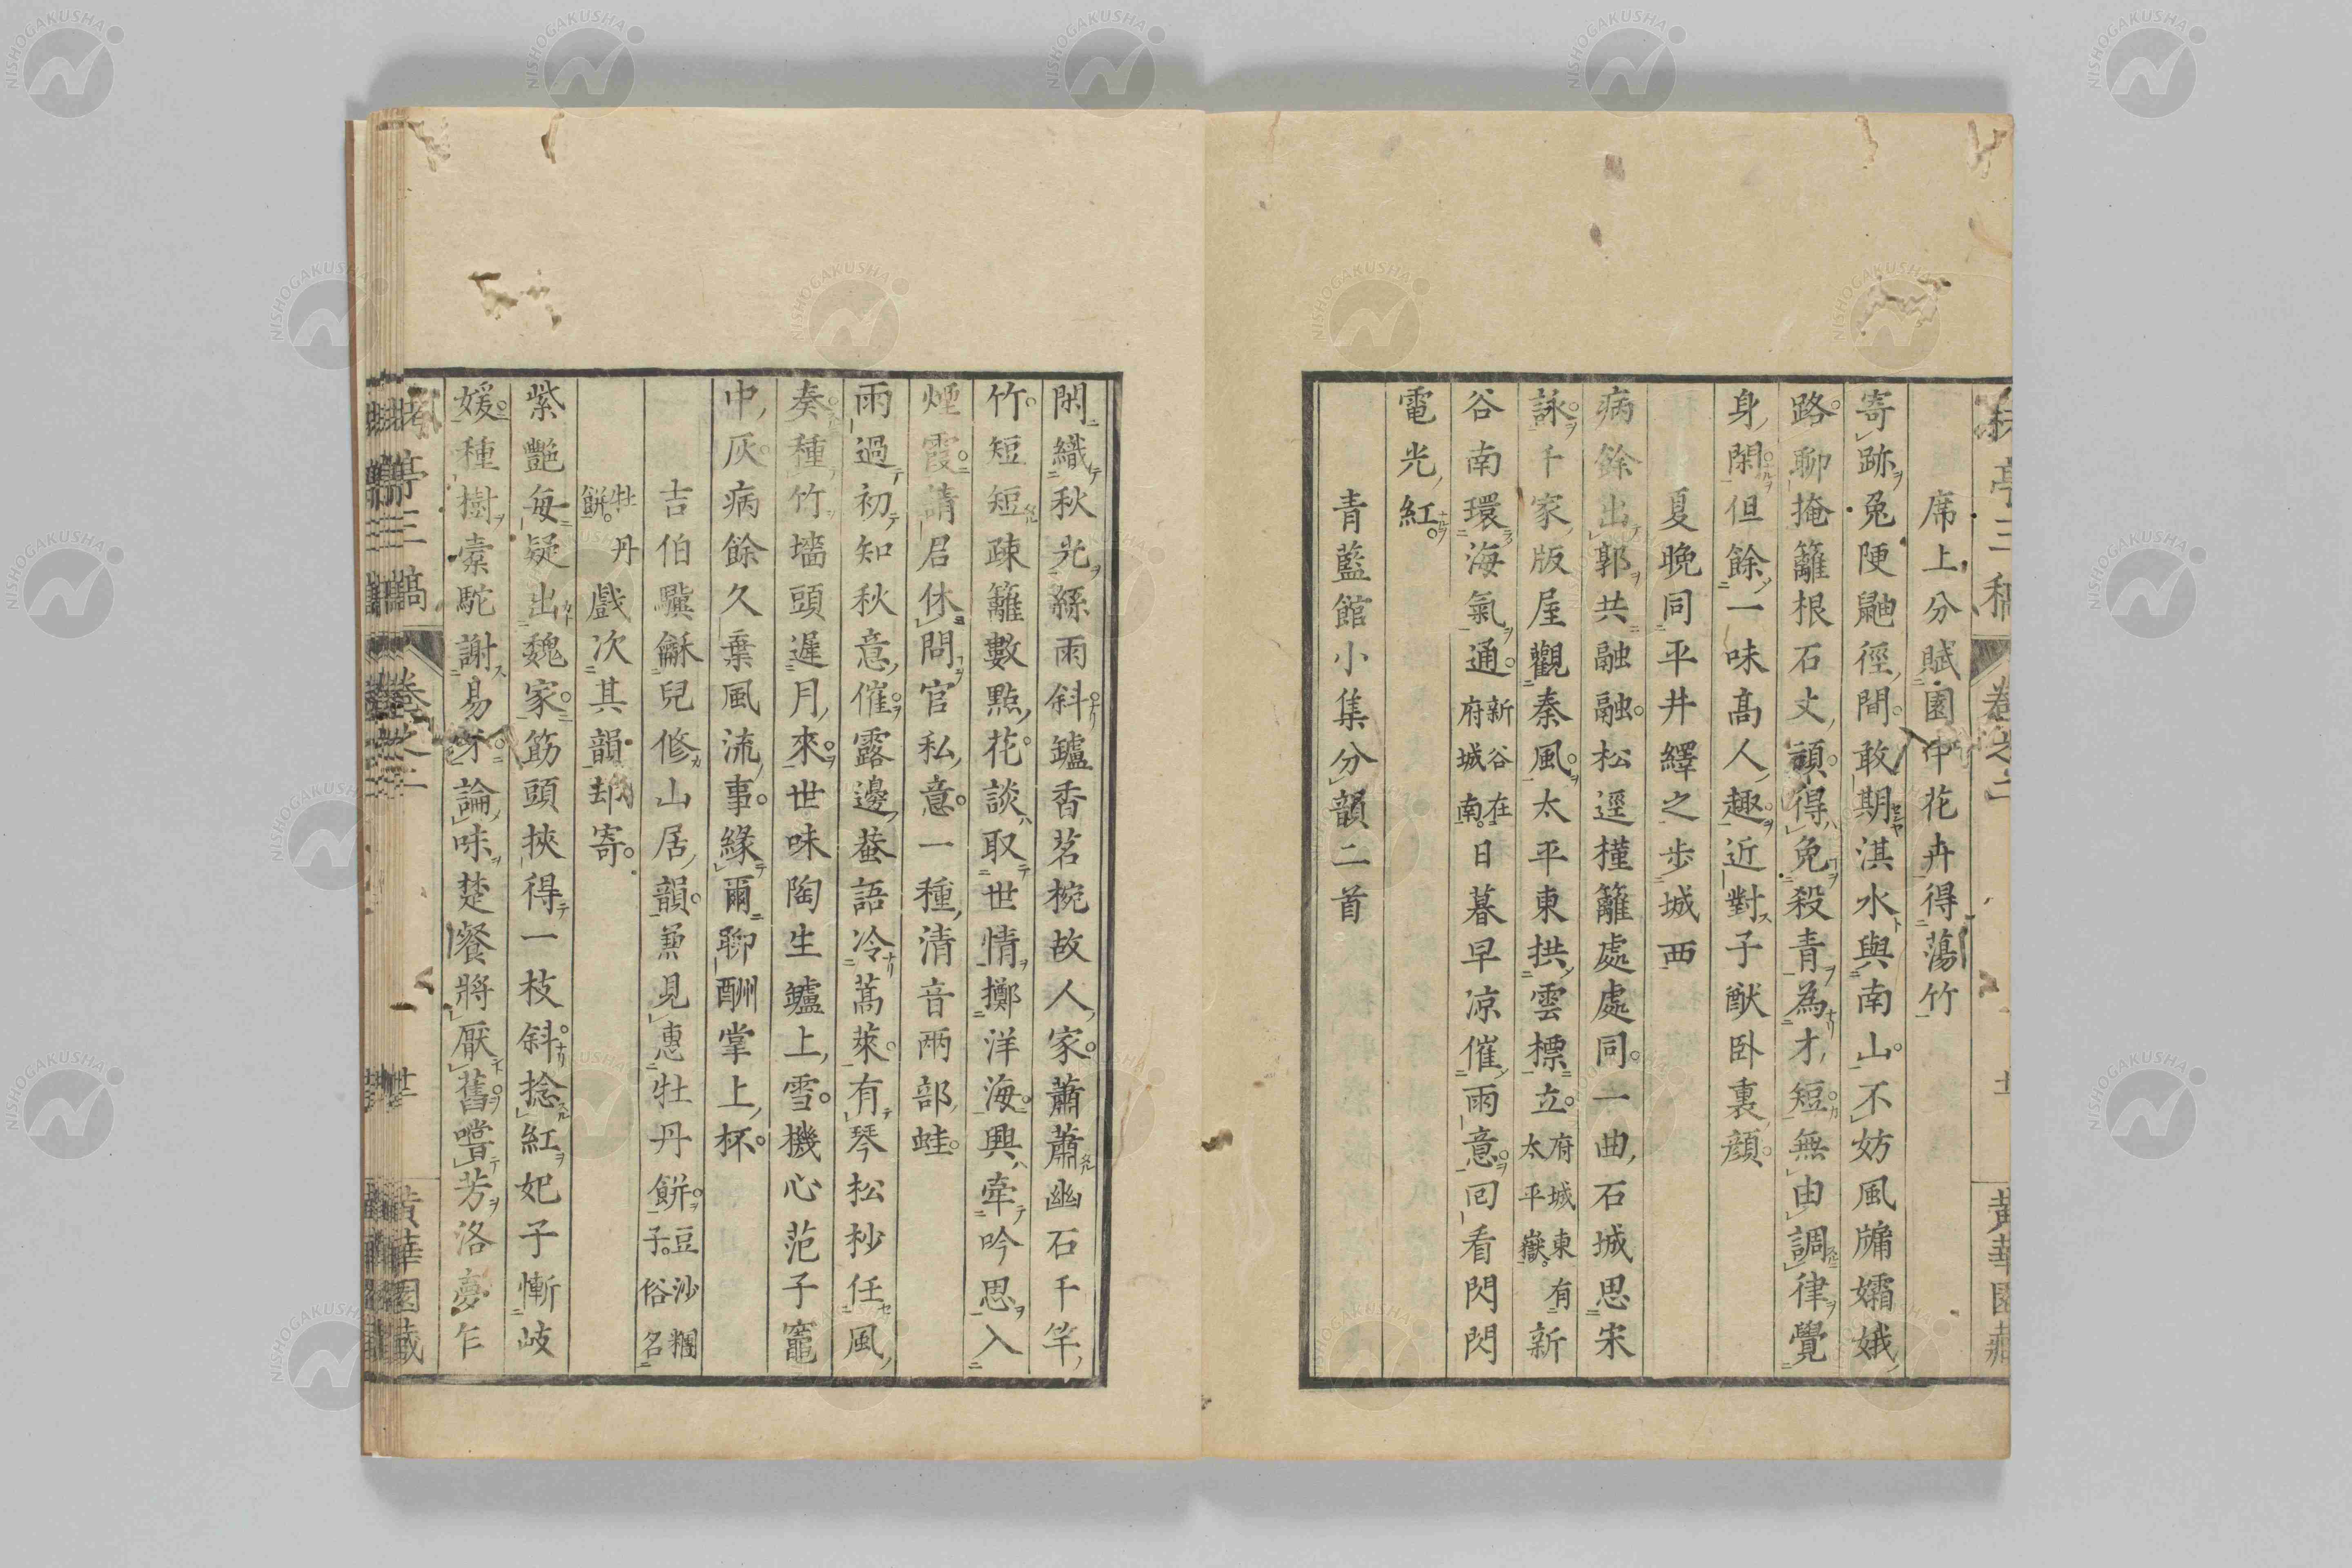 席上分賦園中花卉得蕩竹
寄跡兔陋鼬徑間敢期淇水與南山不妨風牗孀娥
路聊掩籬根石丈頑得免殺青為才短無由調律覺
身閑但餘一味高人趣近對子猷臥裏顔
夏晚同平井繹之步城西
病餘出郭共融融松逕槿籬處處同一曲石城思宋
詠千家版屋觀秦風太平東拱雲標立府城東有新太平嶽
谷南環海氣通新谷在府城南日暮早凉催雨意回看閃閃
電光紅
青藍館小集分韻二首
閑織秋光絲雨斜鑪香茗椀故人家蕭蕭幽石千竿
竹短短疎籬數點花談取世情擲洋海興牽吟思入
煙霞請君休問官私意一種清音兩部蛙
雨過初知秋意催露邊蛬語冷蒿萊有琴松杪任風
奏種竹墻頭遲月來世味陶生鑪上雪機心范子竈
中灰病餘久棄風流事緣爾聊酬掌上杯
吉伯驥龢兒修山居韻兼見惠牡丹餅豆沙糰子俗名
牡丹餅戲次其韻却寄
紫艷每疑出魏家筯頭挾得一枝斜捻紅妃子慚岐
媛種樹槖駝謝易牙論味楚餐將厭舊嚐芳洛夢乍
亭三稿
卷之二
黄華園藏